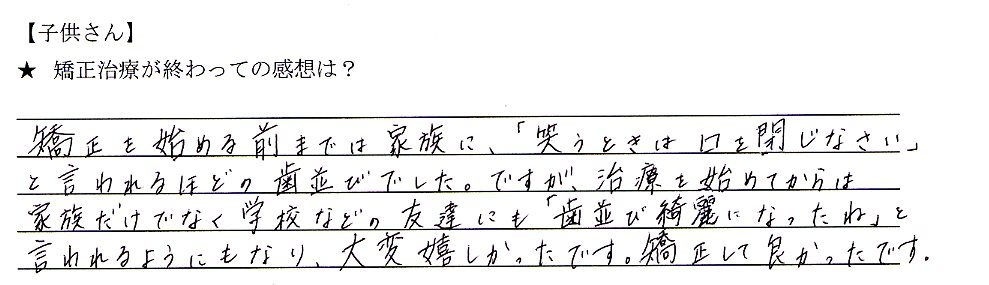 【子供さん】
★ 矯正治療が終わっての感想は？
矯正を始める前までは家族に、「笑うときは口を閉じなさい」
と言われるほどの歯並びでした。ですが、治療を始めてからは
家族だけでなく学校などの友達にも「歯並び綺麗になったね」と
言われるようにもなり、大変嬉しかったです。矯正して良かったです.